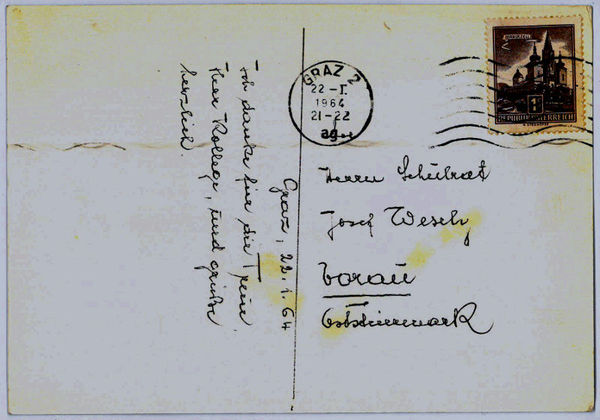 Graz, 22.1.64
Ich danke für die
Herr Kollege, und grüße
herzlich.
GRAZ 2
22-I.
1964
21-22
REPUBLIK ÖSTERREICH
Herrn Schulrat
Josef Wesely
Vorau
Oststeiermark